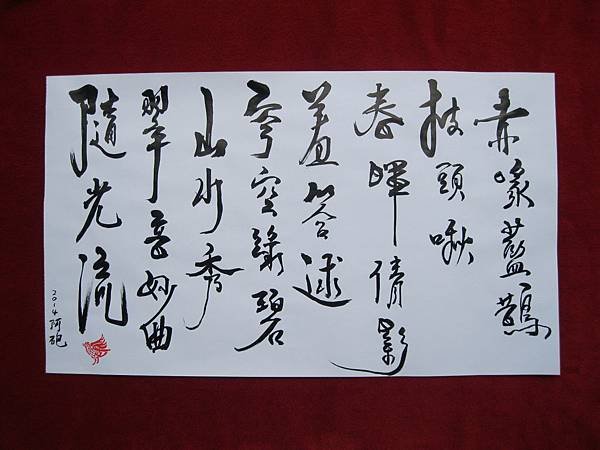 赤喙藍鵲
枝頭啾
春暉倩影
羞答逑
穹空綠碧
山水秀
翠音妙曲
隨光流
2014 阿砲